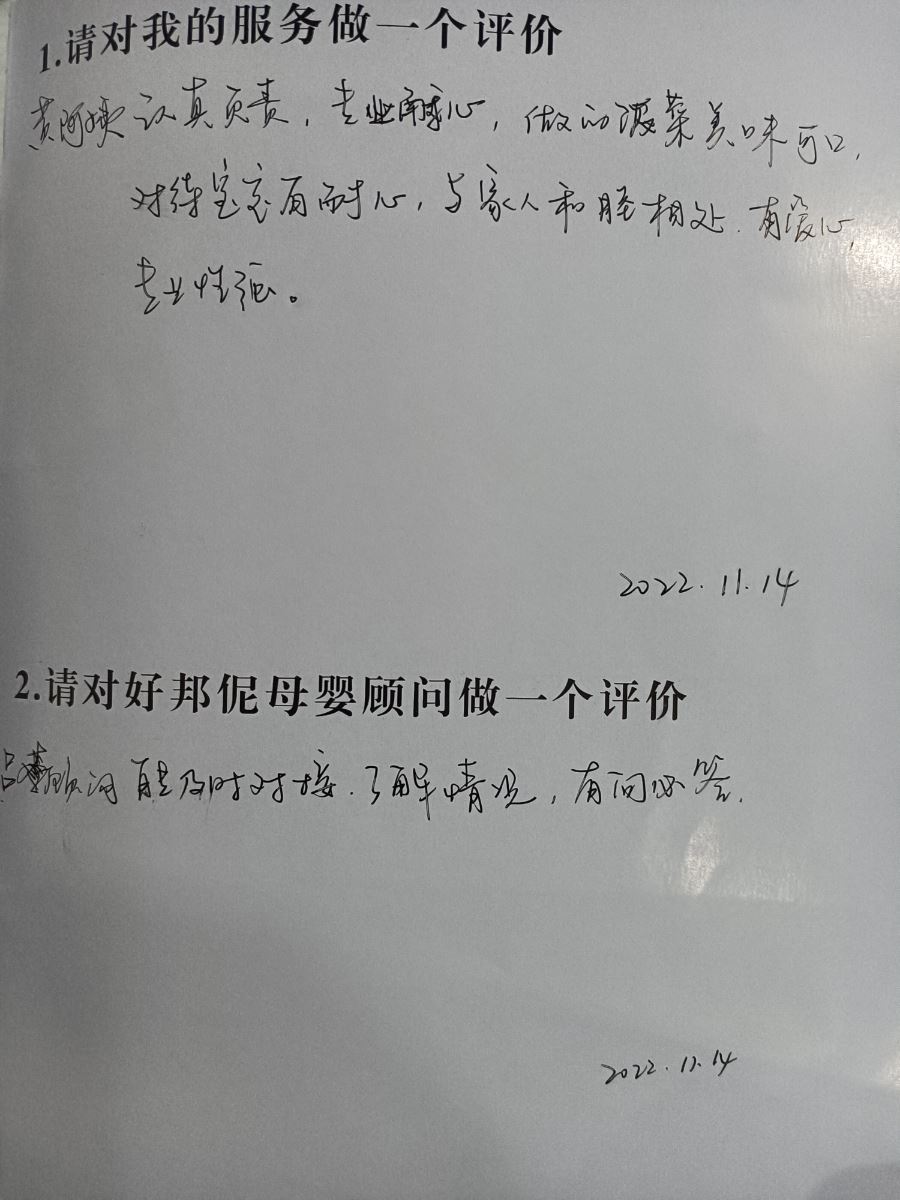 1.请对我的服务做一个评价
黄阿姨认真负责，专业耐心，做的饭菜美味可口，
对待宝宝有耐心，与家人和睦相处.有爱心，
专业性强。
2022.11.14
2.请对好邦伲母婴顾问做一个评价
顾问能及时对接.了解情况，有问必答.
2022.11.14